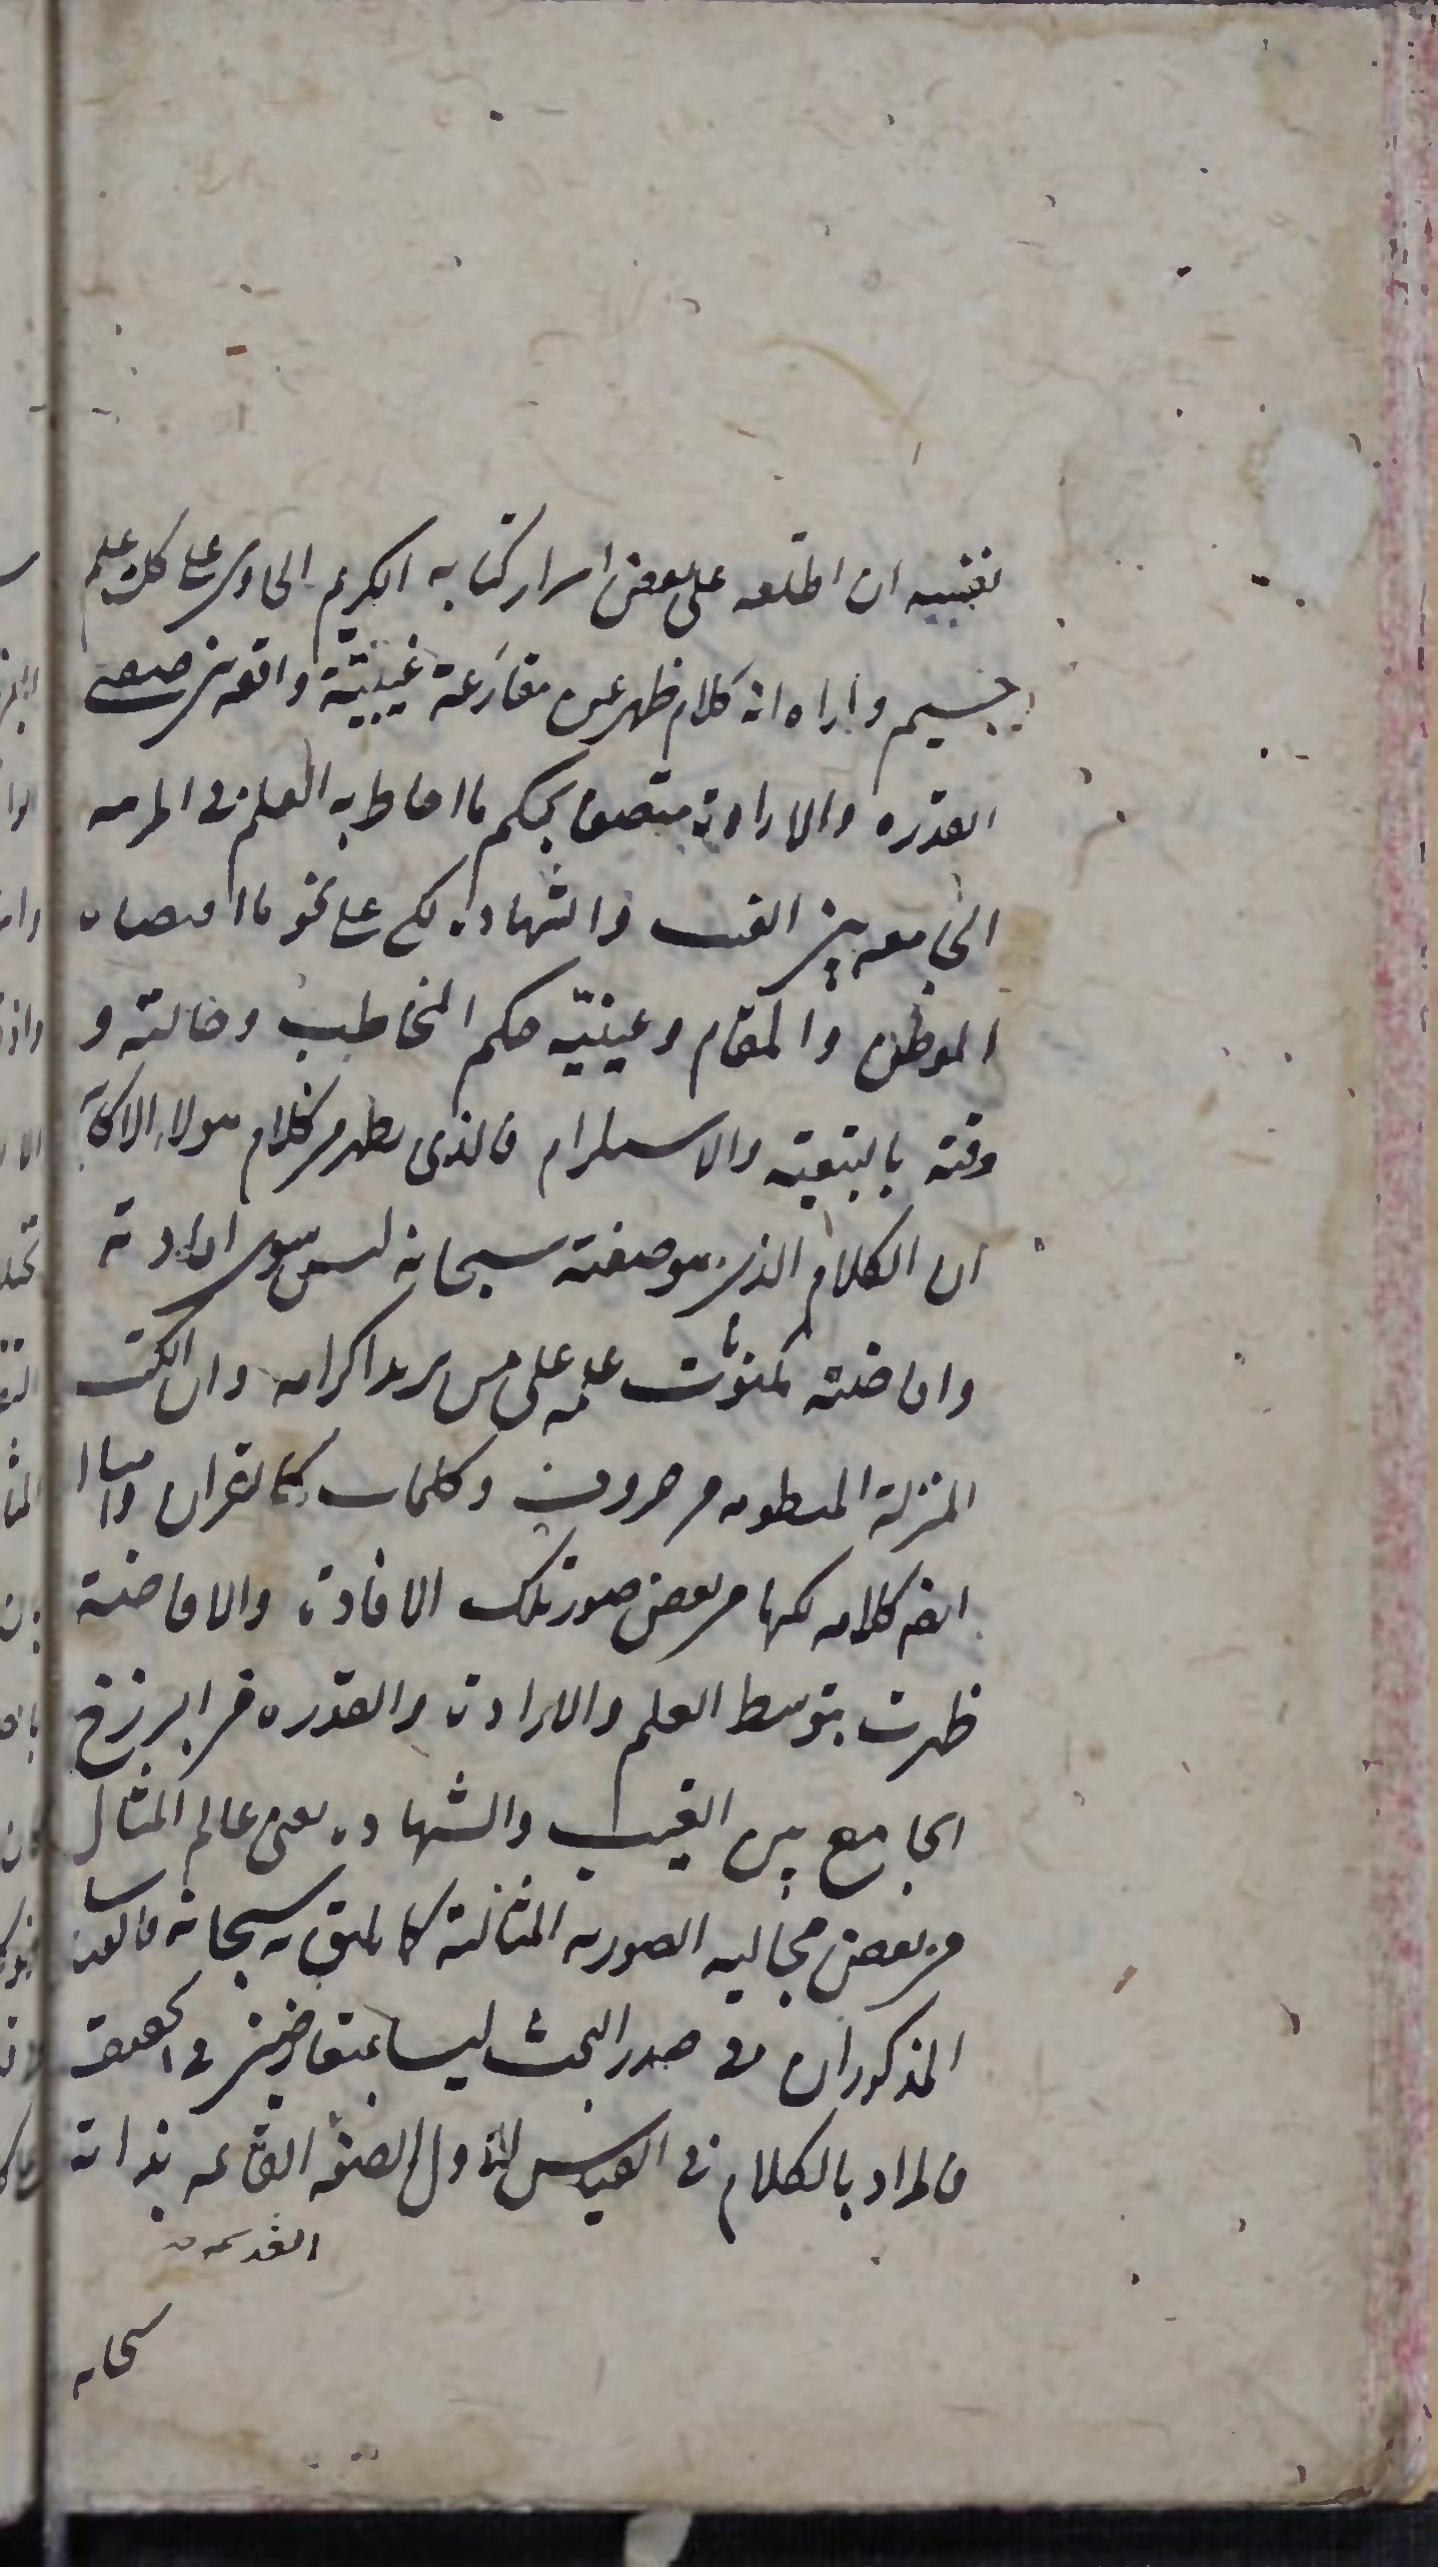 نفسه ان اطلعه على بعض اسرار كتابه الكريم الحاوى على كل علم
جسيم واراه انه كلام ظهر عن مقارعة غيبيّة واقعه بين صفتى
القدره والارادة متصف بحكم ما احاط به العلم فى المرتبه
الجامعه بين الغيب والشهاده لكن على نحو ما اقتضاه
الموطن والمقام وعينيّه حكم المخاطب وحالته و
وقته بالتبعية والاستلزام فالذى يظهر من كلام هولاء الاكابر
ان الكلام الذى هو صفته سبحانه ليس سوى افادته
وافاضته مكنونات علمه على من يريد اكرامه وان الكتب
المنزلة المنظومه من حروف وكلمات كالقران وامثاله
ايضا كلامه لكنها من بعض صور تلك الافادة والافاضة
ظهرت بتوسط العلم والارادة والقدره من البرزخ
الجامع بين الغيب والشهاده يعنى عالم المثال
من بعض مجاليه الصوريه المثالية كما يليق به سبحانه فالقياسان
المذكوران فى صدر البحث ليسا بمتعارضين فى الحقيقه
فالمراد بالكلام فى القياس الاول الصفه القائمه بذاته
القديمه
سبحانه